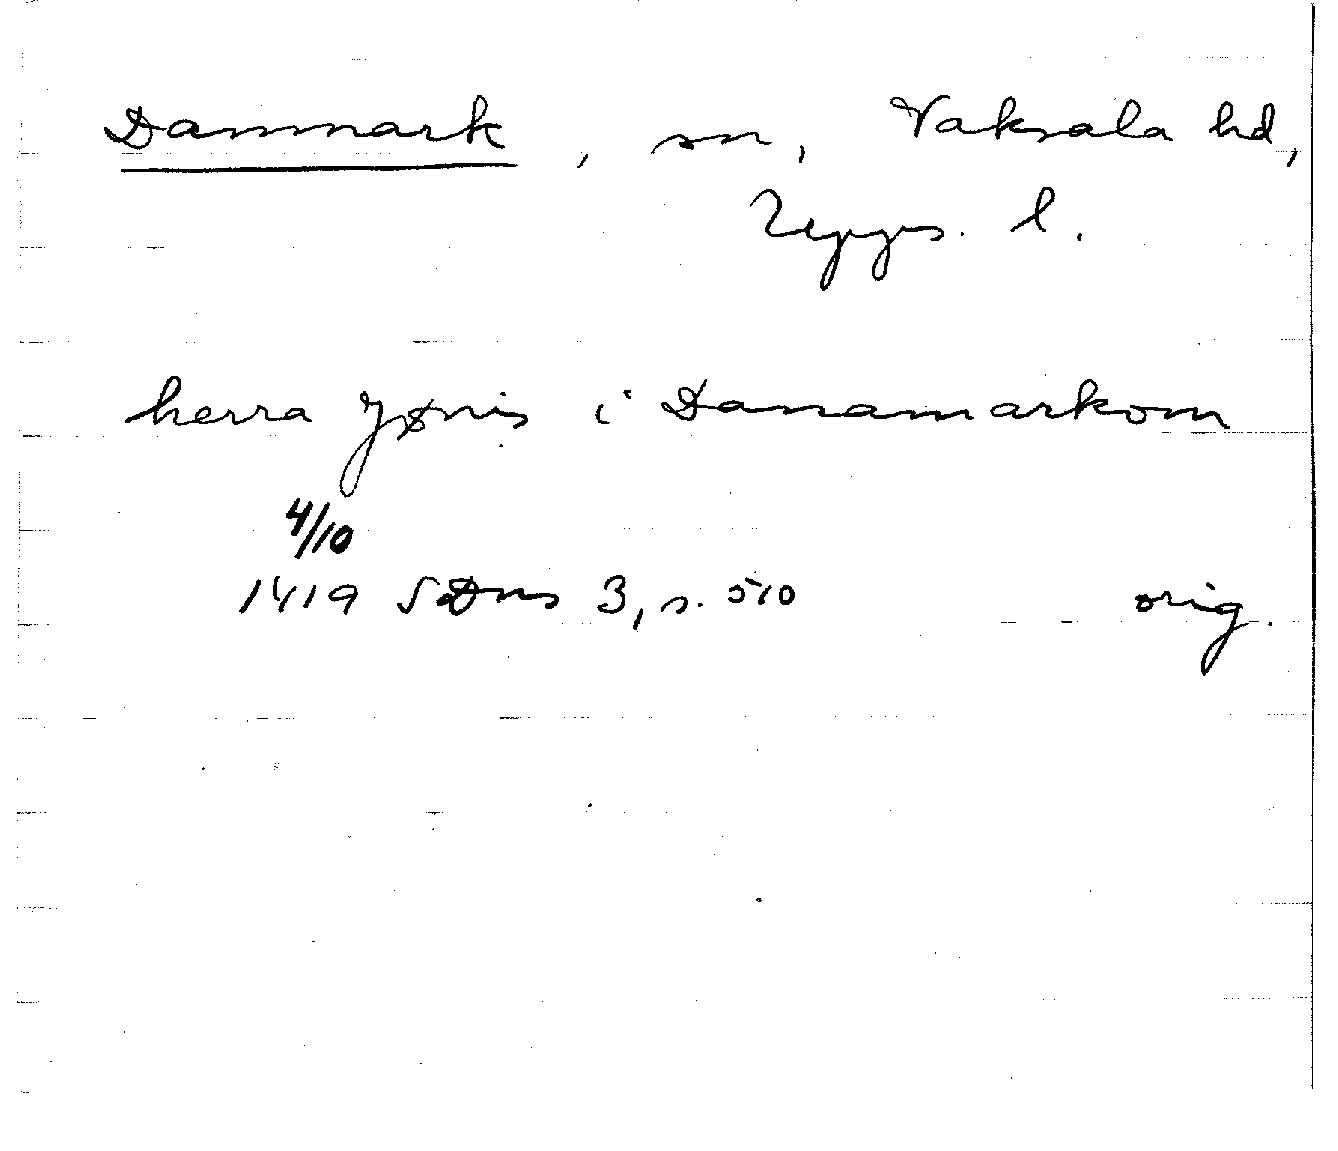 Danmark, sn, Vaksala hd,
Upps. l.
herra Jønis i Danamarkom
4/10
1419 SDns 3, s. 510 orig.